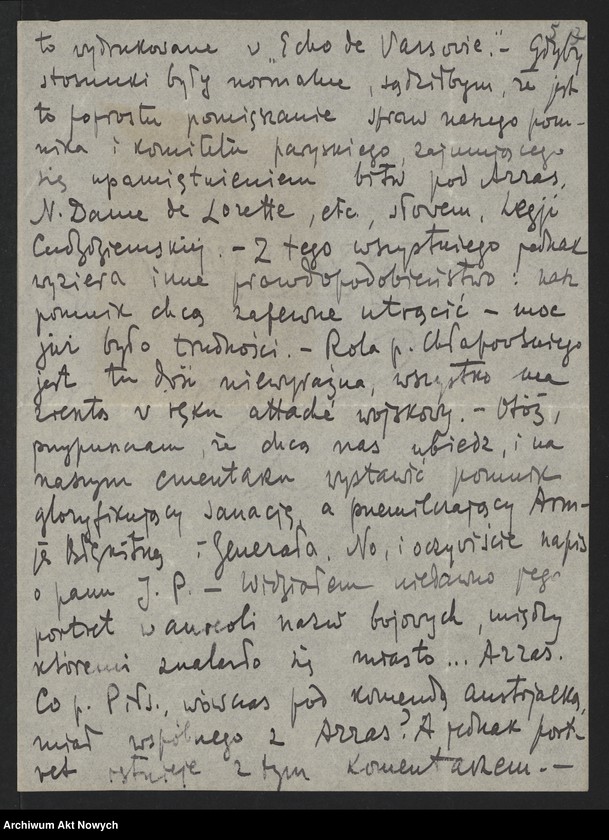 to wydrukowane w "Echo de Varsovie." – Gdyby
stosunki były normalne, sądziłbym, że jest
to poprostu pomięszanie spraw naszego pom-
nika i komitetu paryskiego, zajmującego
się upamiętnieniem bitw pod Arras,
N. Dame de Lorette, etc., słowem, Legji
Cudzoziemskiej. – Z tego wszystkiego jednak
wyziera inne prawdopodobieństwo: nasz
pomnik chcą zapewne utrącić – moc
już było trudności. – Rola p. Chłapowskiego
jest tu dziś niewyraźna, wszystko ma
zresztą w ręku attaché wojskowy. – Otóż,
przypuszczam, że chcą nas ubiedz, i na
naszym cmentarzu wystawić pomnik
gloryfikujący sanację, a przemilczający Arm-
ję Błękitną i Generała. No, i oczywiście napis
o panu J. P. – Widziałem niedawno jego
portret w aureoli nazw bojowych, między
któremi znalazło się miasto... Arras.
Co p. Piłs., wówczas pod komendą austrjacką,
miał wspólnego z Arras? A jednak port-
ret istnieje z tym komentarzem. –
Archiwum Akt Nowych